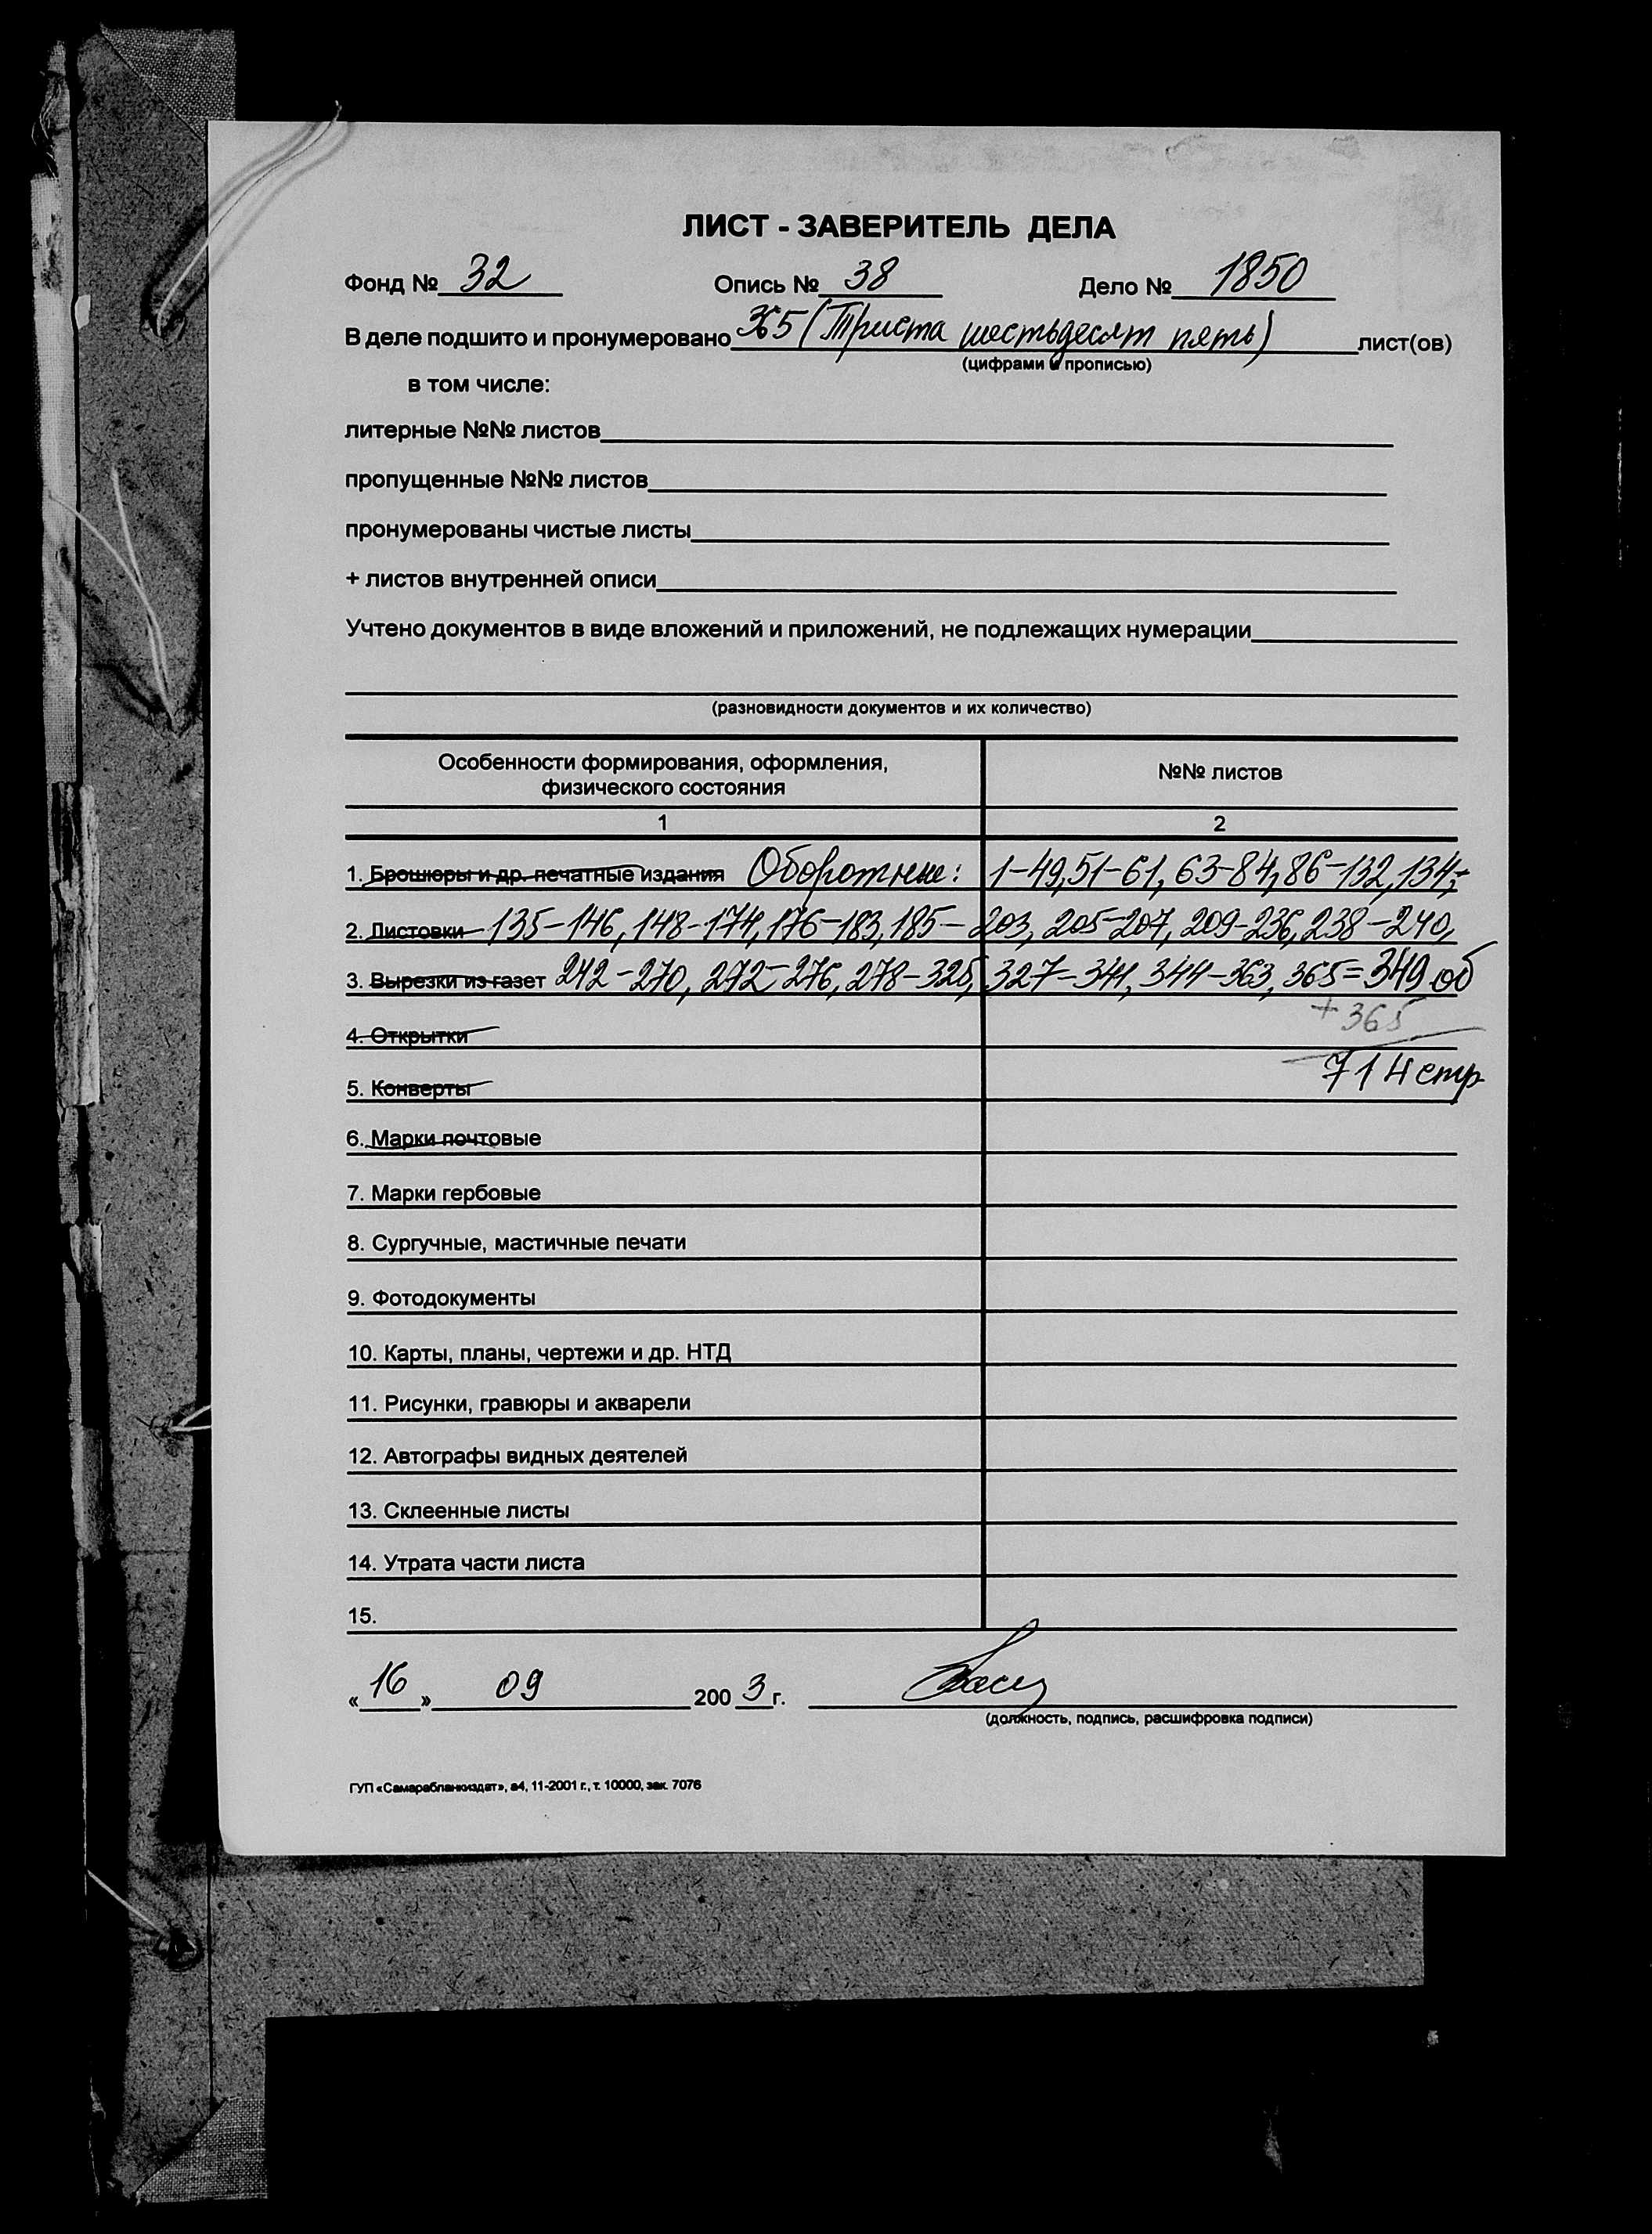 ЛИСТ - ЗАВЕРИТЕЛЬ ДЕЛА
Фонд № 32 Опись № 38 Дело № 1850
В деле подшито и пронумеровано 365 (Триста шестьдесят пять) лист(ов)
(цифрами и прописью)
в том числе:
литерные №№ листов
пропущенные №№ листов
пронумерованы чистые листы
+ листов внутренней описи
Учтено документов в виде вложений и приложений, не подлежащих нумерации
(разновидности документов и их количество)
Особенности формирования, оформления, физического состояния №№ листов
1 2
1. Брошюры и др. печатные издания Оборотные: 1-49, 51-61, 63-84, 86-132, 134,
2. Листовки 135-146, 148-174, 176-183, 185-203, 205-207, 209-236, 238-240,
3. Вырезки из газет 242-270, 272-276, 278-325, 327-341, 344-363, 365=349 об
+365
4. Открытки
714 стр
5. Конверты
6. Марки почтовые
7. Марки гербовые
8. Сургучные, мастичные печати
9. Фотодокументы
10. Карты, планы, чертежи и др. НТД
11. Рисунки, гравюры и акварели
12. Автографы видных деятелей
13. Склеенные листы
14. Утрата части листа
15.
«16» 09 2003 г.
(должность, подпись, расшифровка подписи)
ГУП «Самарабланкиздат», а4, 11-2001 г., т. 10000, зак. 7076